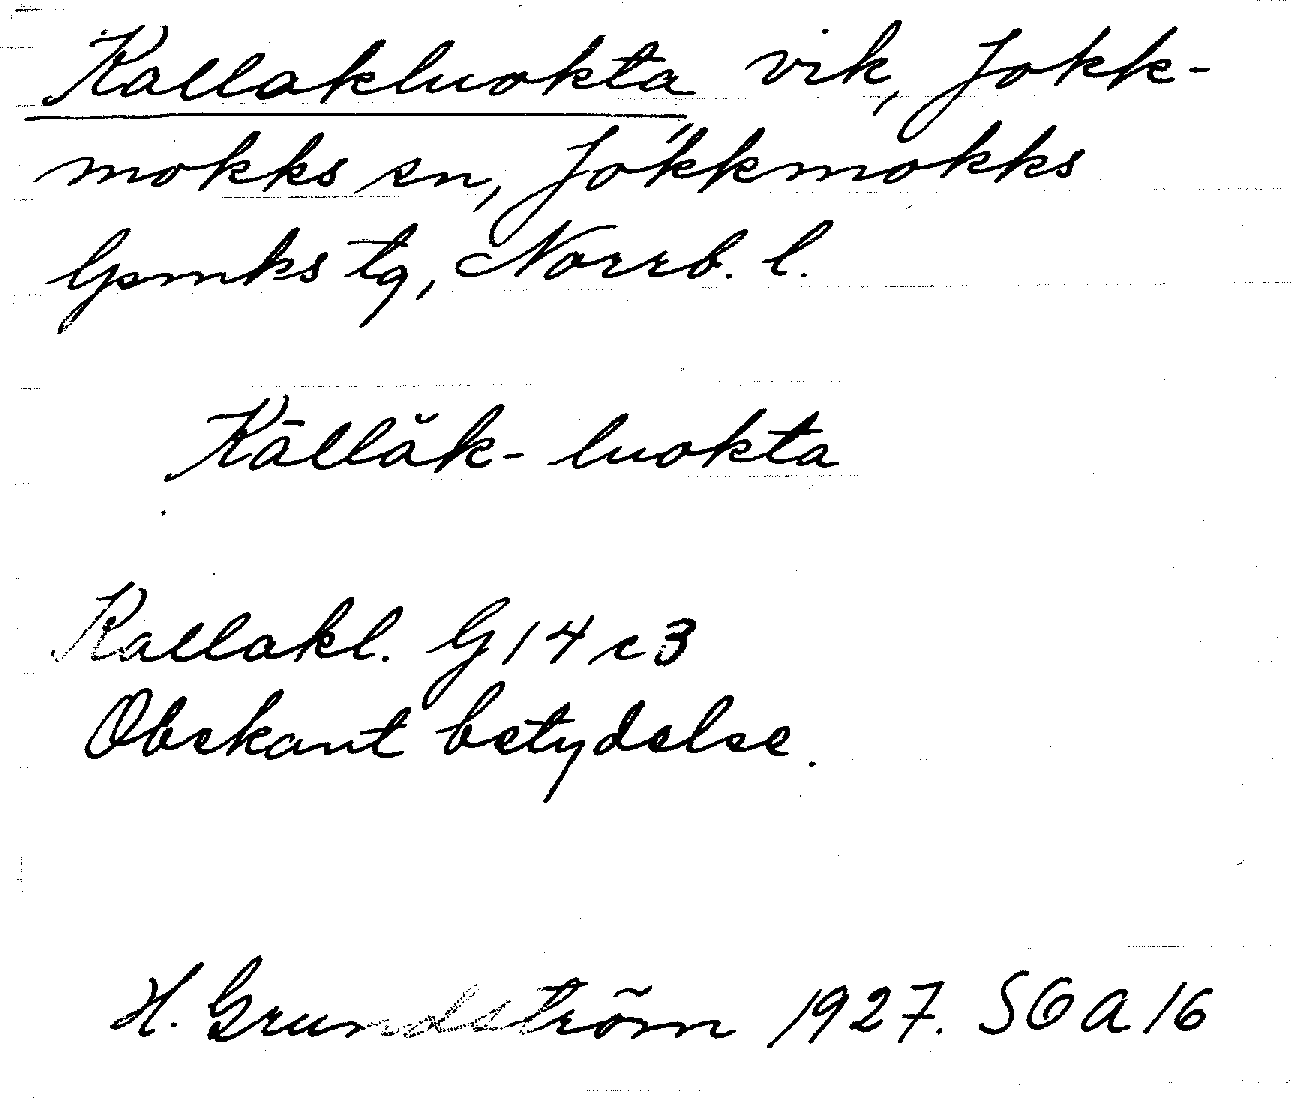 Kallakluokta vik, Jokk-
mokks sn, Jokkmokks
lpmks tg, Norrb. l.
Kāllăk-luokta
Kallakl. G 14 c 3
Obekant betydelse.
H. Grundström 1927. SOA 16